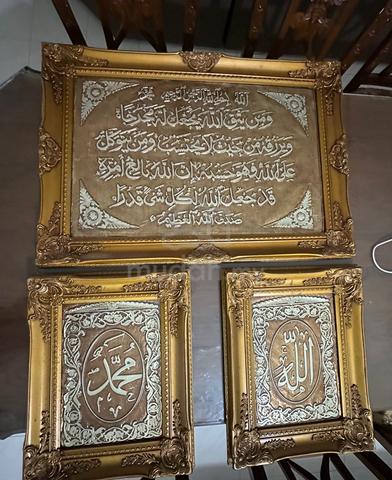 بسم الله الرحمن الرحيم
ومن يتق الله يجعل له مخرجا
ويرزقه من حيث لا يحتسب ومن يتوكل
على الله فهو حسبه إن الله بالغ أمره
قد جعل الله لكل شئ قدرا
صدق الله العظيم
محمد
الله
mudah.my